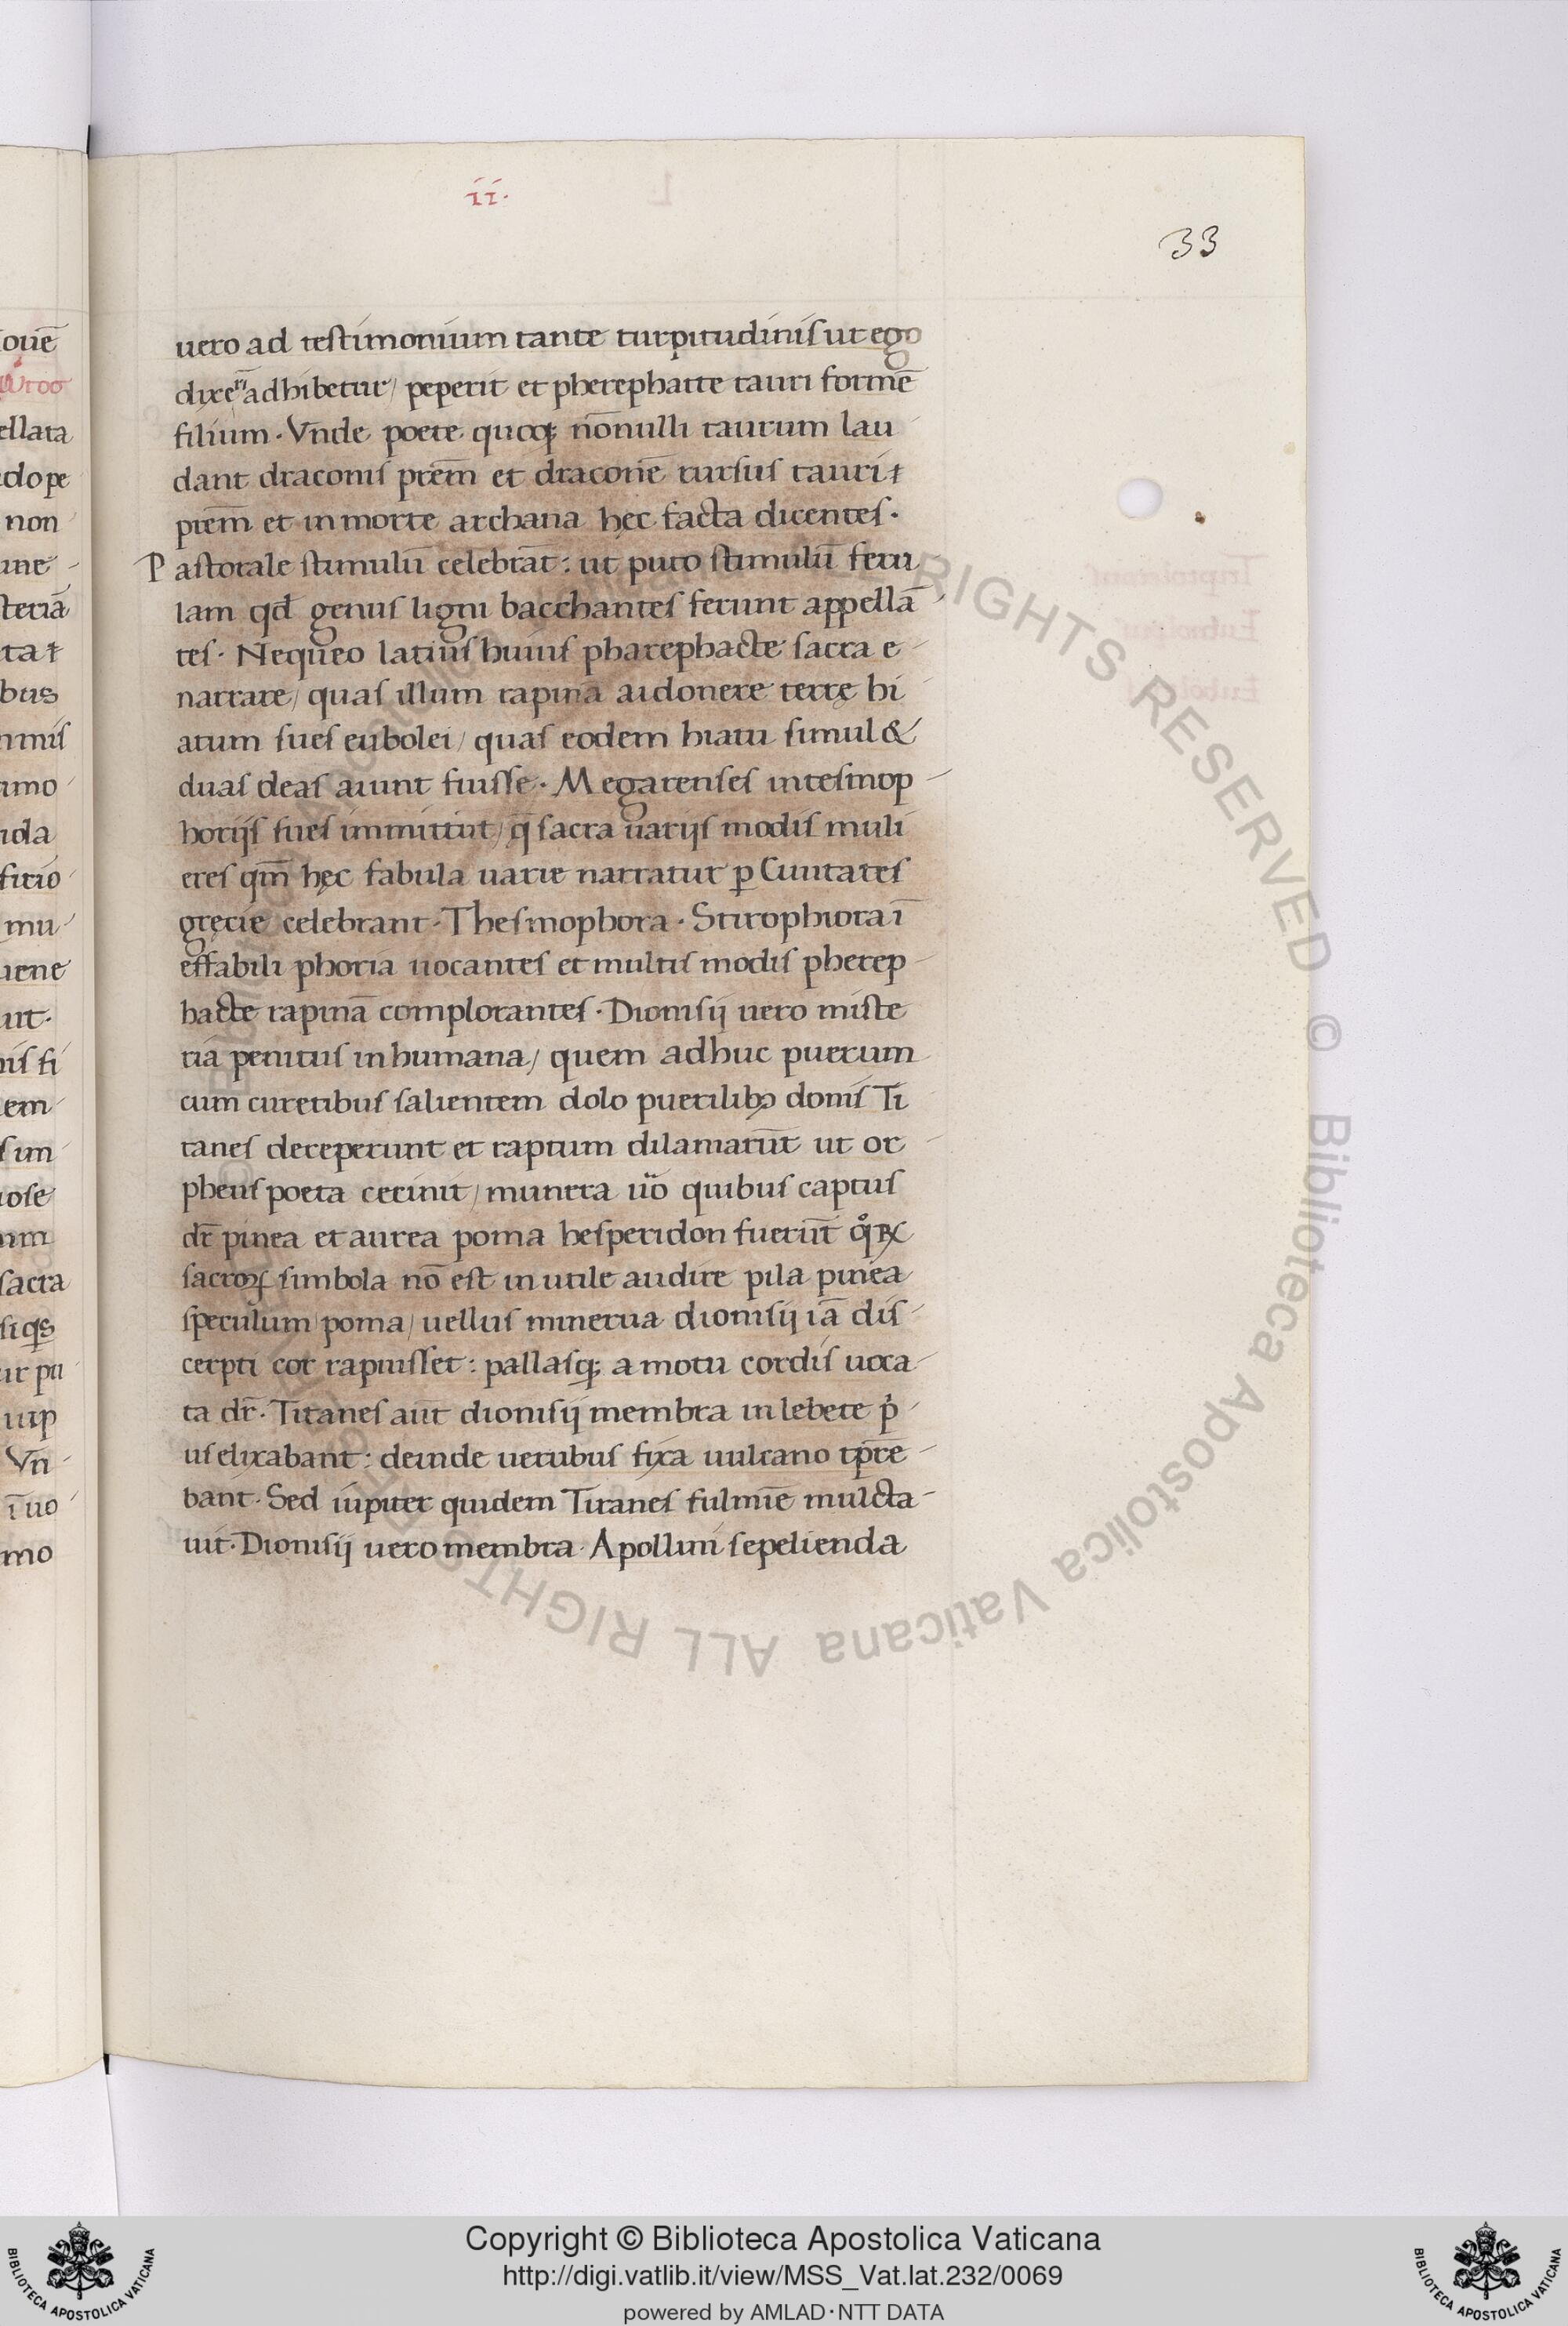 ii.
33
uero ad testimonium tante turpitudinis ut ego
dixerĩ adhibetur/ peperit et pherephatte tauri formẽ
filium. Vnde poete quoq; nõnulli taurum lau
dant draconis prẽm et draconẽ rursus tauri
prẽm et in morte archana hęc facta dicentes.
Pastorale stimulũ celebrãt: ut puto stimulũ feru
lam qđ genus ligni bacchantes ferunt appellã
tes. Nequeo latius huius pharephacte sacra e
narrare/ quas illum rapinã aidonere terrę hi
atum sues eubolei/ quas eodem hiatu simul &
duas deas aiunt fuisse. Megarenses in tesmop
horijs sues immittũt/ q̃ sacra uarijs modis muli
eres qm̃ hęc fabula uarie narratur ꝑ Ciuitates
gręcie celebrant. Thesmophora. Stirophiora ĩ
effabili phoria uocantes et multis modis pherep
hacte rapinã complorantes. Dionisij uero miste
ria penitus inhumana/ quem adhuc puerum
cum curetibus salientem dolo puerilibꝫ donis Ti
tanes dereperunt et raptum dilaniarũt ut or
pheus poeta cecinit/ munera ũo quibus captus
dr̃ pinea et aurea poma hesperidon fuerũt qͦꝝ
sacroꝝ simbola nõ est inutile audire pila pinea
speculum/ poma/ uellus minerua dionisij iã dis
cerpti cor rapuisset: pallasq; a motu cordis uoca
ta dr̃. Titanes aũt dionisij membra in lebete p̍
us elixabant: deinde uerubus fixa uulcano tp̃re
bant. Sed iupiter quidem Titanes fulmiẽ mulcta
uit. Dionisij uero membra Apollini sepelienda
Copyright © Biblioteca Apostolica Vaticana
http://digi.vatlib.it/view/MSS_Vat.lat.232/0069
powered by AMLAD·NTT DATA